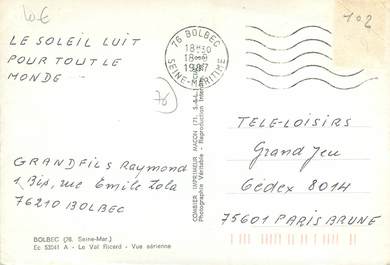 10€
102
76 BOLBEC
18H30
1987
SEINE-MARITIME
LE SOLEIL LUIT
POUR TOUT LE
MONDE
76
TELE-LOISIRS
Grand Jeu
Cédex 8014
75601 PARIS BRUNE
GRANDFILS Raymond
1 Bis, rue Emile Zola
76210 BOLBEC
COMBIER IMPRIMEUR MACON (71. S.-&-L.)
Photographie Véritable - Reproduction Interdite
BOLBEC (76. Seine-Mar.)
Ec 53041 A - Le Val Ricard - Vue aérienne